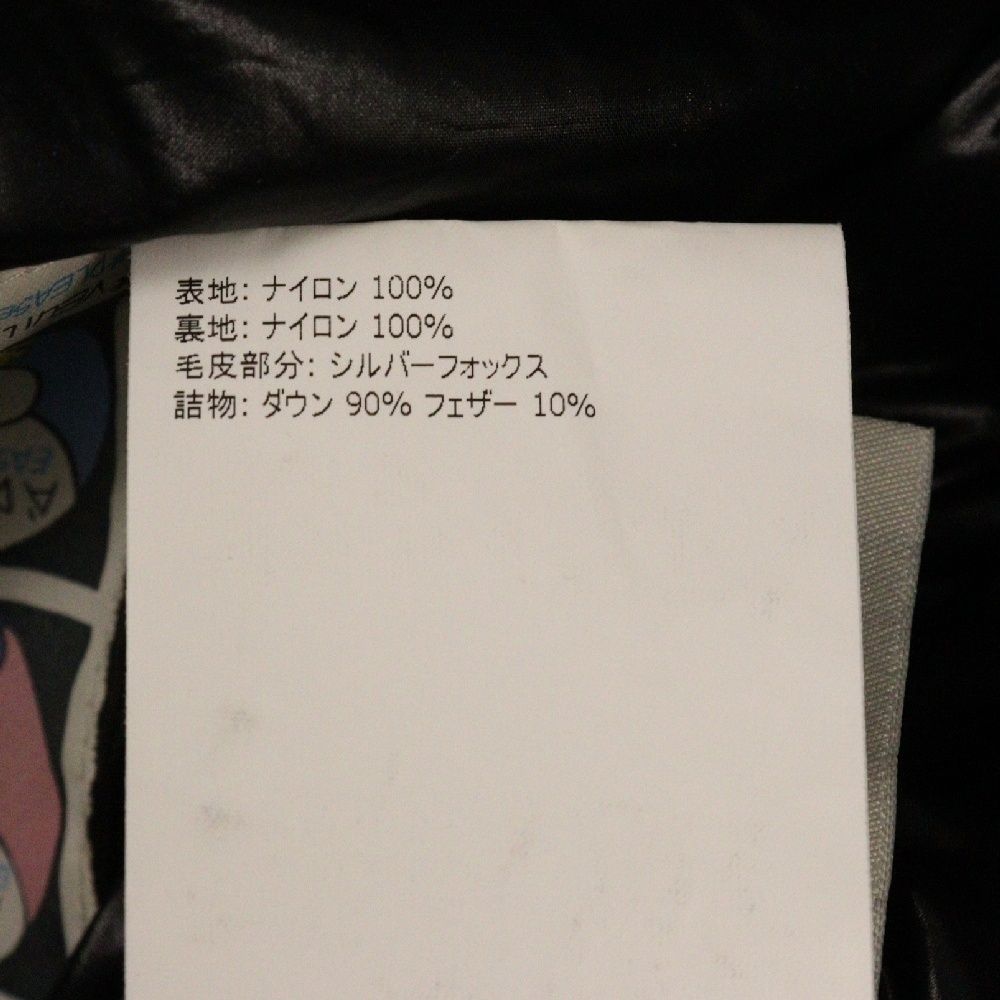 表地: ナイロン 100%
裏地: ナイロン 100%
毛皮部分: シルバーフォックス
詰物: ダウン 90% フェザー 10%